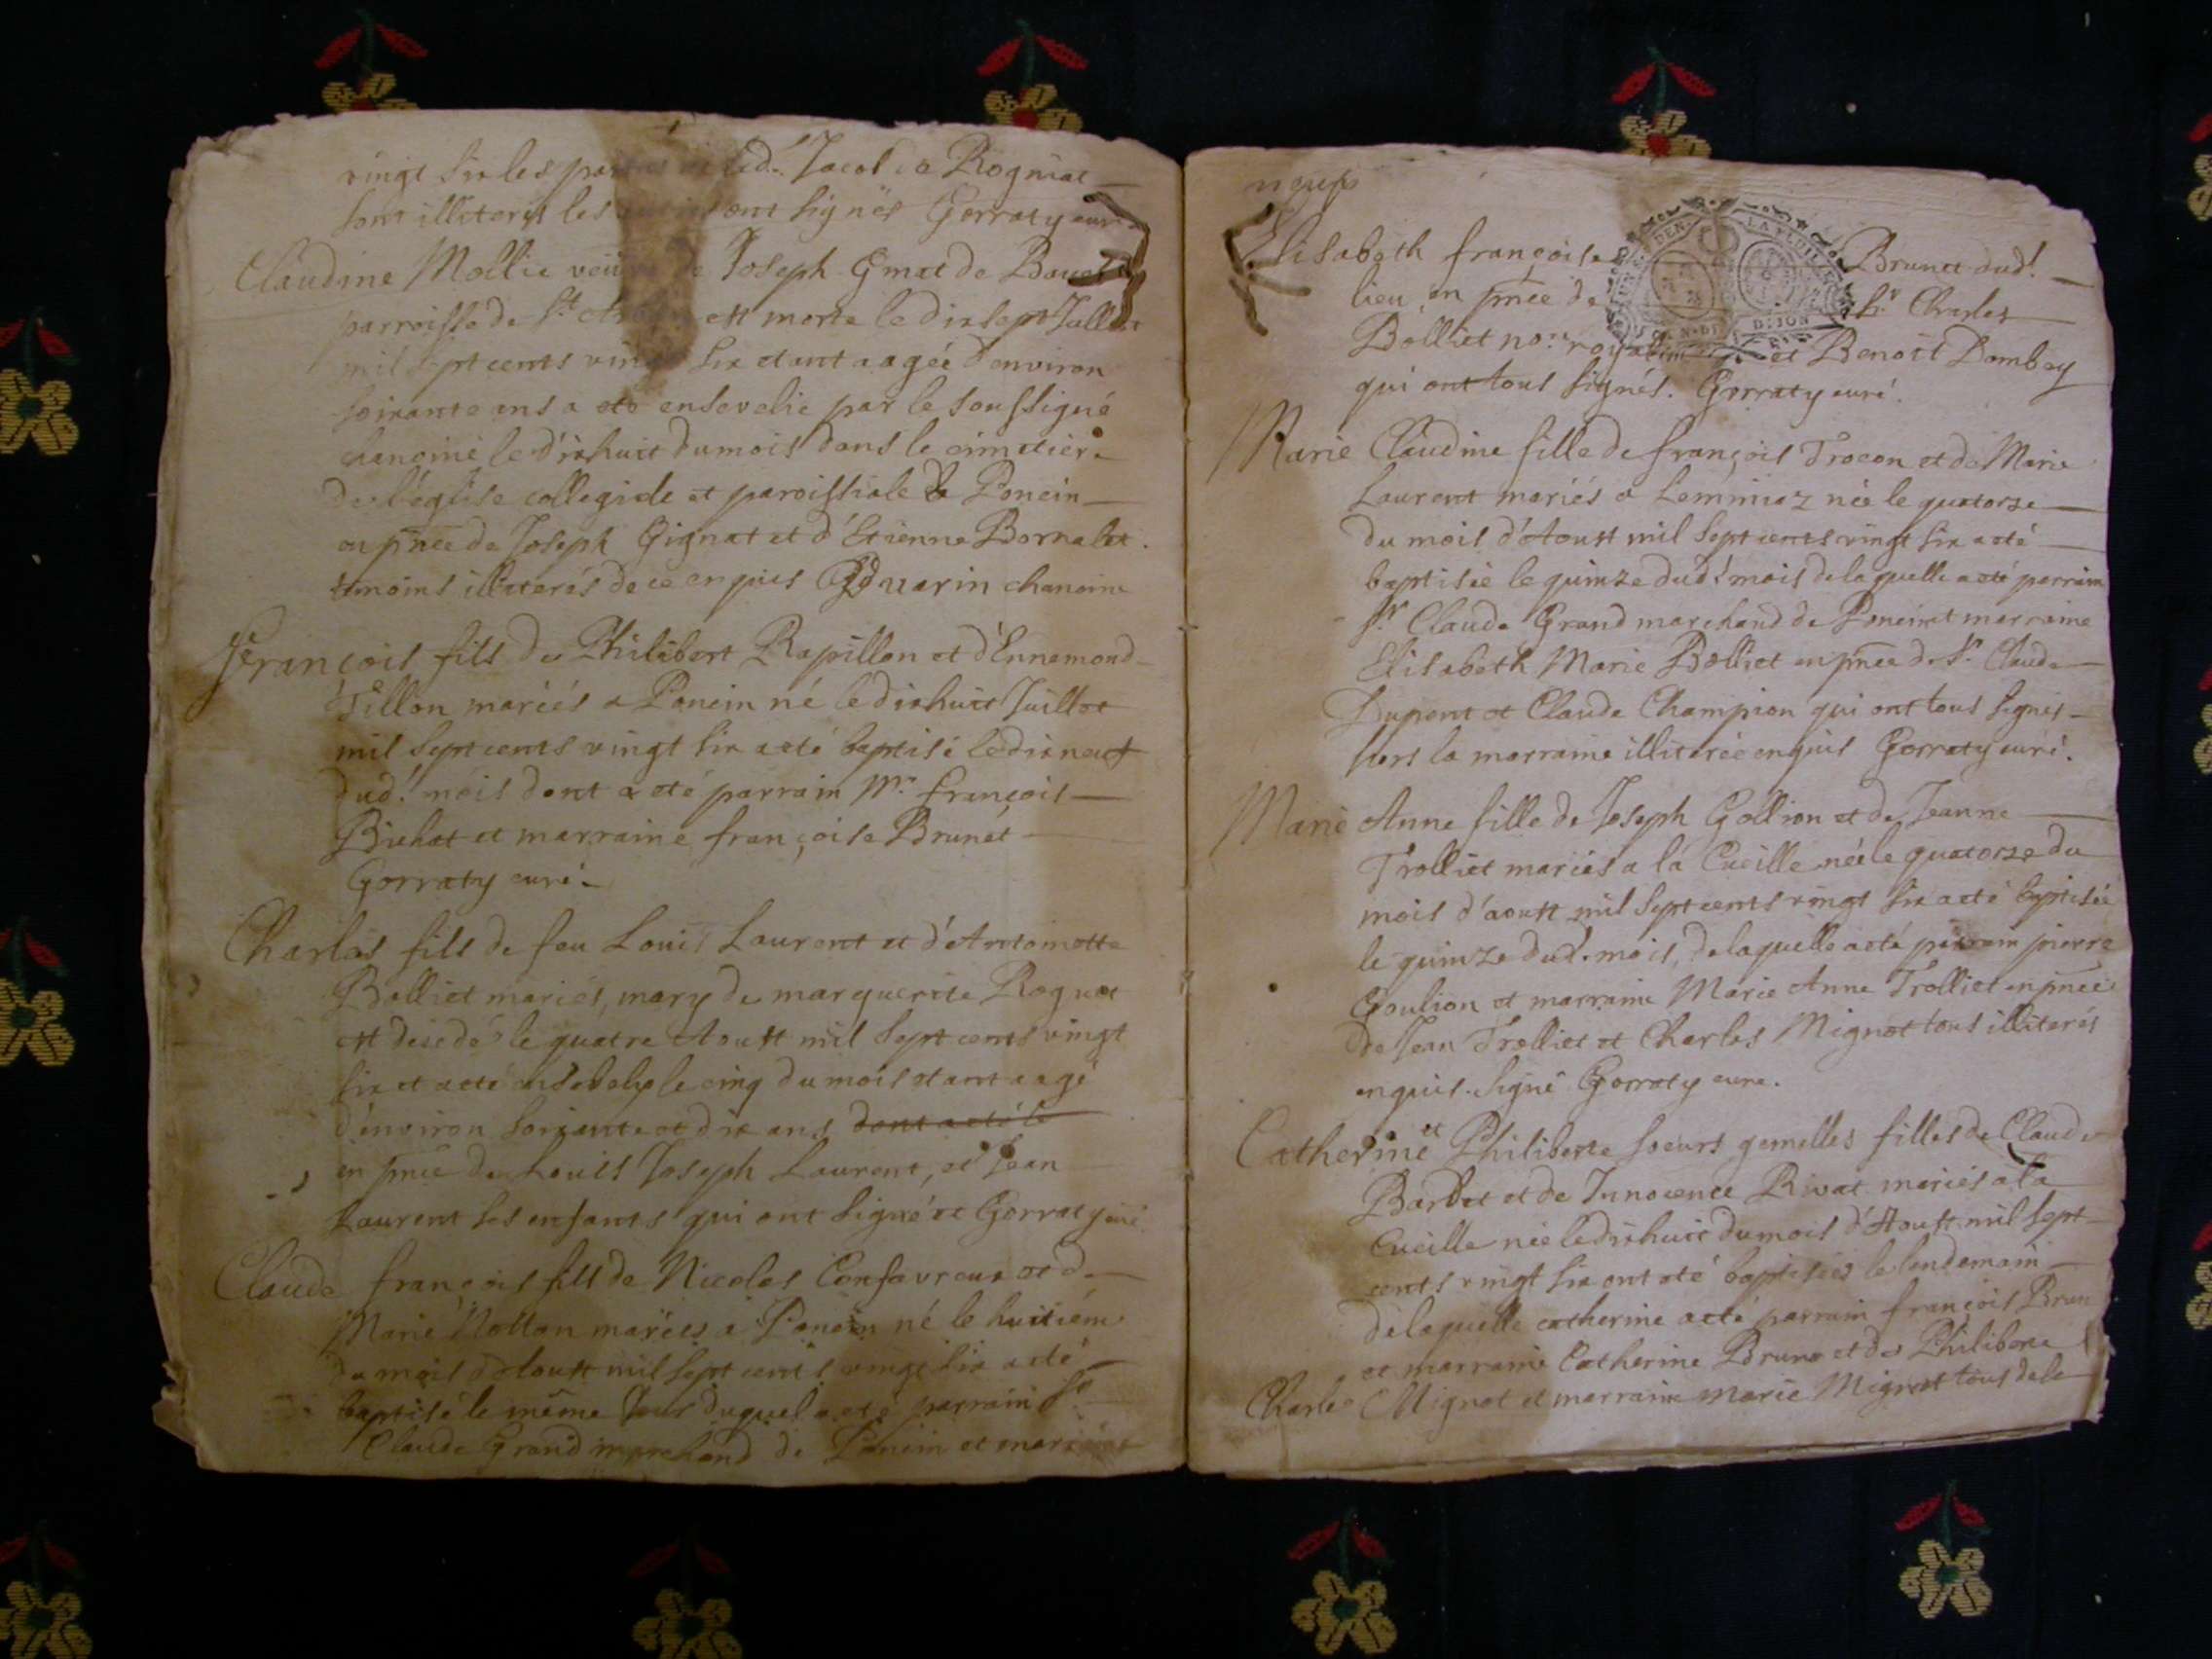 vingt six les parties et led. Jacob ca Rogniat
sont illiterés les ont signés Gorraty curé
Claudine Mollie veuve de Joseph Gmat de
parroisse de St est morte le dixsept Juillet
mil sept cents vingt six etant aagée d'environ
soixante ans a eté ensevelie par le soussigné
chanoine le dixhuit du mois dans le cimetiere
de l'église collegiale et paroissiale de Poncin
en pnce de Joseph Gignat et d'Etienne Bornalet.
temoins illiterés de ce enquis varin chanoine
François fils de Philibert Rapillon et d'Ennemond
Tillon mariés a Poncin né le dixhuit Juillet
mil sept cents vingt six a eté baptisé le dix neuf
dud.t mois dont a eté parrain Mr. françois
Bichat et marraine françoise Brunet
Gorraty curé
Charles fils de feu Louis Laurent et d'Antoinette
Bolliet mariés, mary de marguerite Roguet
est decedé le quatre Aoust mil sept cents vingt
six et a eté ensevely le cinq du mois etant aagé
d'environ soixante et dix ans dont a eté le
en pnce de Louis Joseph Laurent, et Jean
Laurent ses enfants qui ont signé et Gorraty curé
Claude françois fils de Nicolas Confavreux et de
Marie Nollan mariés a Poncin né le huitiéme
du mois d'Aoust mil sept cents vingt six a eté
baptisé le même Jour duquel a eté parrain Sr.
Claude Grand marchand de Poncin et marraine
neuf
Elisabeth françoise Brunet dud.t
lieu en pnce de Sr. Charles
Bolliet no.re royal et Benoit Dombey
qui ont tous signés. Gorraty curé.
Marie Claudine fille de françois Trocon et de Marie
Laurent mariés a Lemmiaz née le quatorze
du mois d'Aoust mil sept cents vingt six a eté
baptisée le quinze dud.t mois de laquelle a eté parrain
Sr. Claude Grand marchand de Poncin et marraine
Elisabeth Marie Bolliet en pnce de Sr. Claude
Dupont et Claude Champion qui ont tous signés
hors la marraine illiterée enquis Gorraty curé.
Marie Anne fille de Joseph Gollion et de Jeanne
Trolliet mariés a la Cueille née le quatorze du
mois d'aoust mil sept cents vingt six a eté baptisée
le quinze dud. mois, de laquelle a eté parrain pierre
Goulion et marraine Marie Anne Trolliet en pnce
de Jean Trolliet et Charles Mignot tous illiterés
enquis. Signé Gorraty curé.
Catherine et Philiberte soeurs gemelles filles de Claude
Barbet et de Innocence Rivat mariés a la
Cueille née le dixhuit du mois d'Aoust mil sept
cents vingt six ont eté baptisées le lendemain
de laquelle catherine a eté parrain françois Brun
et marraine Catherine Brune et de Philiberte
Charle Mignot et marraine Marie Mignot tous de la